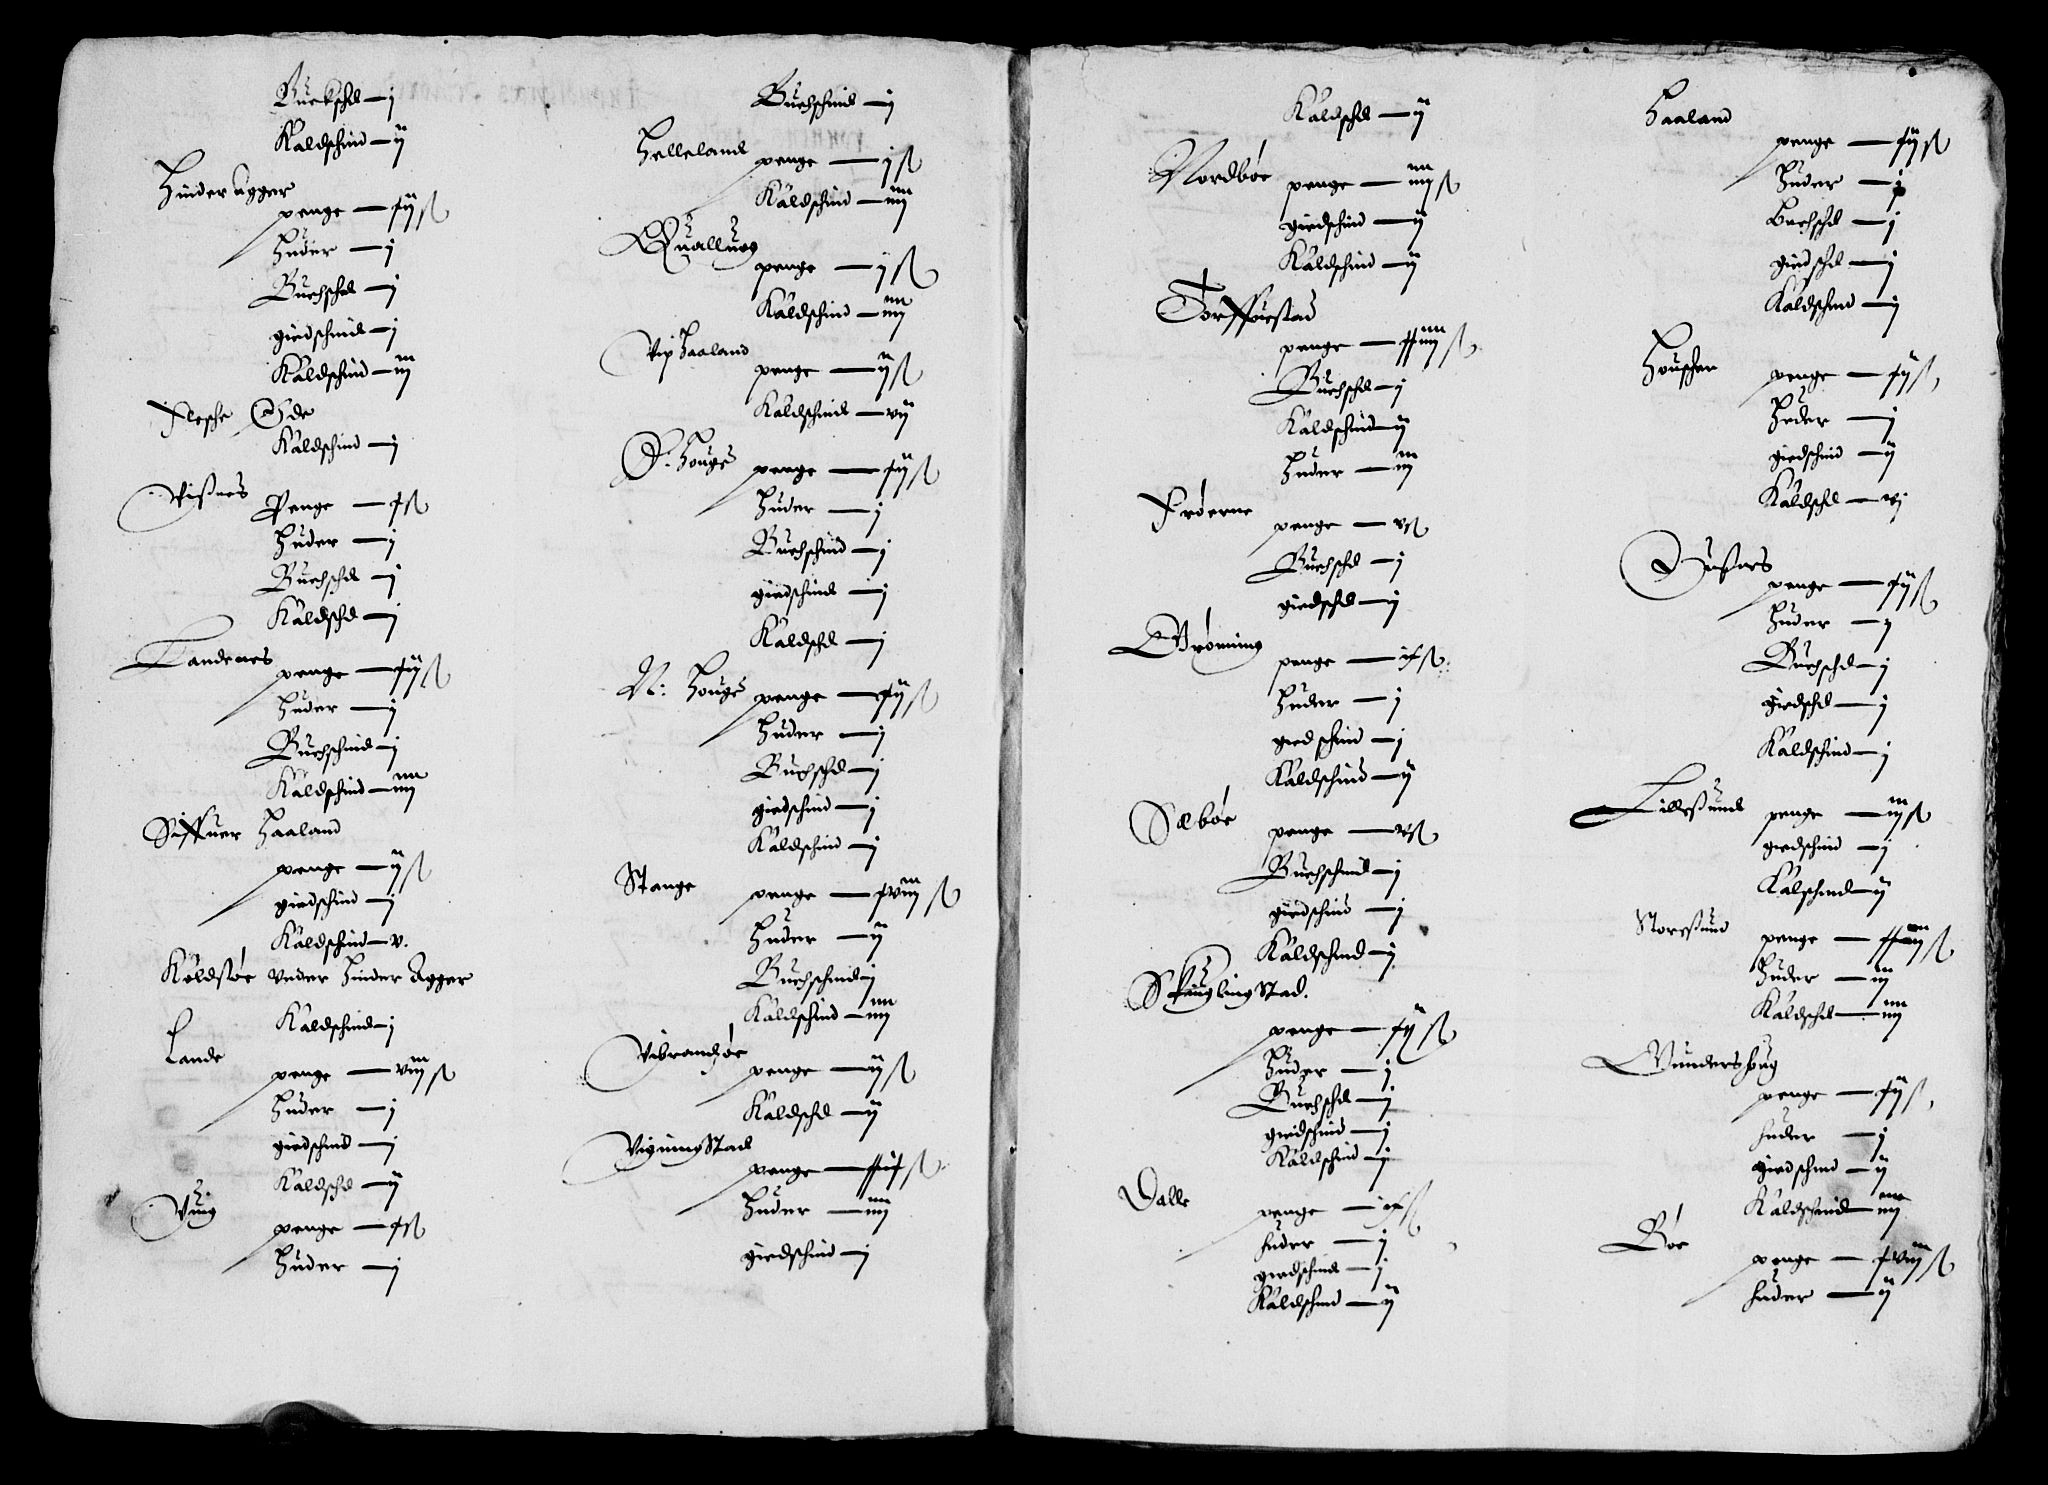 Buckschd — j
Kaldschind — ij
Hinder agger
penge — fij ß
Huder — j
Buchschd — j
giedschind — j
Kaldschind — iij
Flesche Øde
Kaldschind — j
Vißnes
Penge — f ß
Huder — j
Buchschd — j
Kaldschd — j
Sandenes
penge — fij ß
Huder — j
Buchschind — j
Kaldschind — iiij
Siffuer Haaland
penge — ij ß
giedschind — j
Kaldschind — v.
Koldstøe vnder Hinder Agger
Kaldschind — j
Lande
penge — viij ß
Huder — j
giedschind — j
Kaldschd — ij
Vüig
penge — f ß
Huder — j
Buchschind — j
Helleland
penge — j ß
Kaldschind — iiij
Qualluog
penge — j ß
Kaldschind — iiij
Vip Haaland
penge — ij ß
Kaldschind — vij
S: Houge
penge — fij ß
Huder — j
Buchschind — j
giedschind — j
Kaldschd — j
N: Houge
penge — fij ß
Huder — j
Buchschd — j
giedschind — j
Kaldschind — j
Stange
penge — fviij ß
Huder — ij
Buchschind — j
Kaldschind — iiij
Vibrandzøe
penge — ij ß
Kaldschd — ij
VigningStad
penge — ffif ß
Huder — iiij
giedschind — j
Kaldschd — ij
Nordbøe
penge — iiij ß
giedschind — ij
Kaldschind — ij
Torffuestad
penge — ffiiij ß
Buchschd — j
Kaldschind — ij
Huder — iij
Frøerne
penge — v ß
Buchschd — j
giedschd — j
Grønning
penge — if ß
Huder — j
giedschind — j
Kaldschind — ij
Sæbøe
penge — v ß
Buchschind — j
giedschind — j
Kaldschind — ij
SküglingStad.
penge — fij ß
Huder — j
Buchschd — j
giedschind — j
Kaldschind — j
Dalle
penge — if ß
huder — j
giedschind — j
Kaldschind — ij
Haaland
penge — fij ß
Huder — j
Buchschd — j
giedschd — j
Kaldschind — j
Houschen
penge — fij ß
Huder — j
giedschind — ij
Kaldschd — vj
penge — fij ß
Huder — j
Buchschd — j
giedschd — j
Kaldschind — j
Lilleßund
penge — iij ß
giedschind — j
Kalschind — ij
Storeßund
penge — ffiiij ß
Huder — iij
Kaldschd — iiij
Gundershaug
penge — fij ß
huder — j
giedschind — ij
Kaldschind — iiij
Bøe
penge — fviij ß
huder — ij